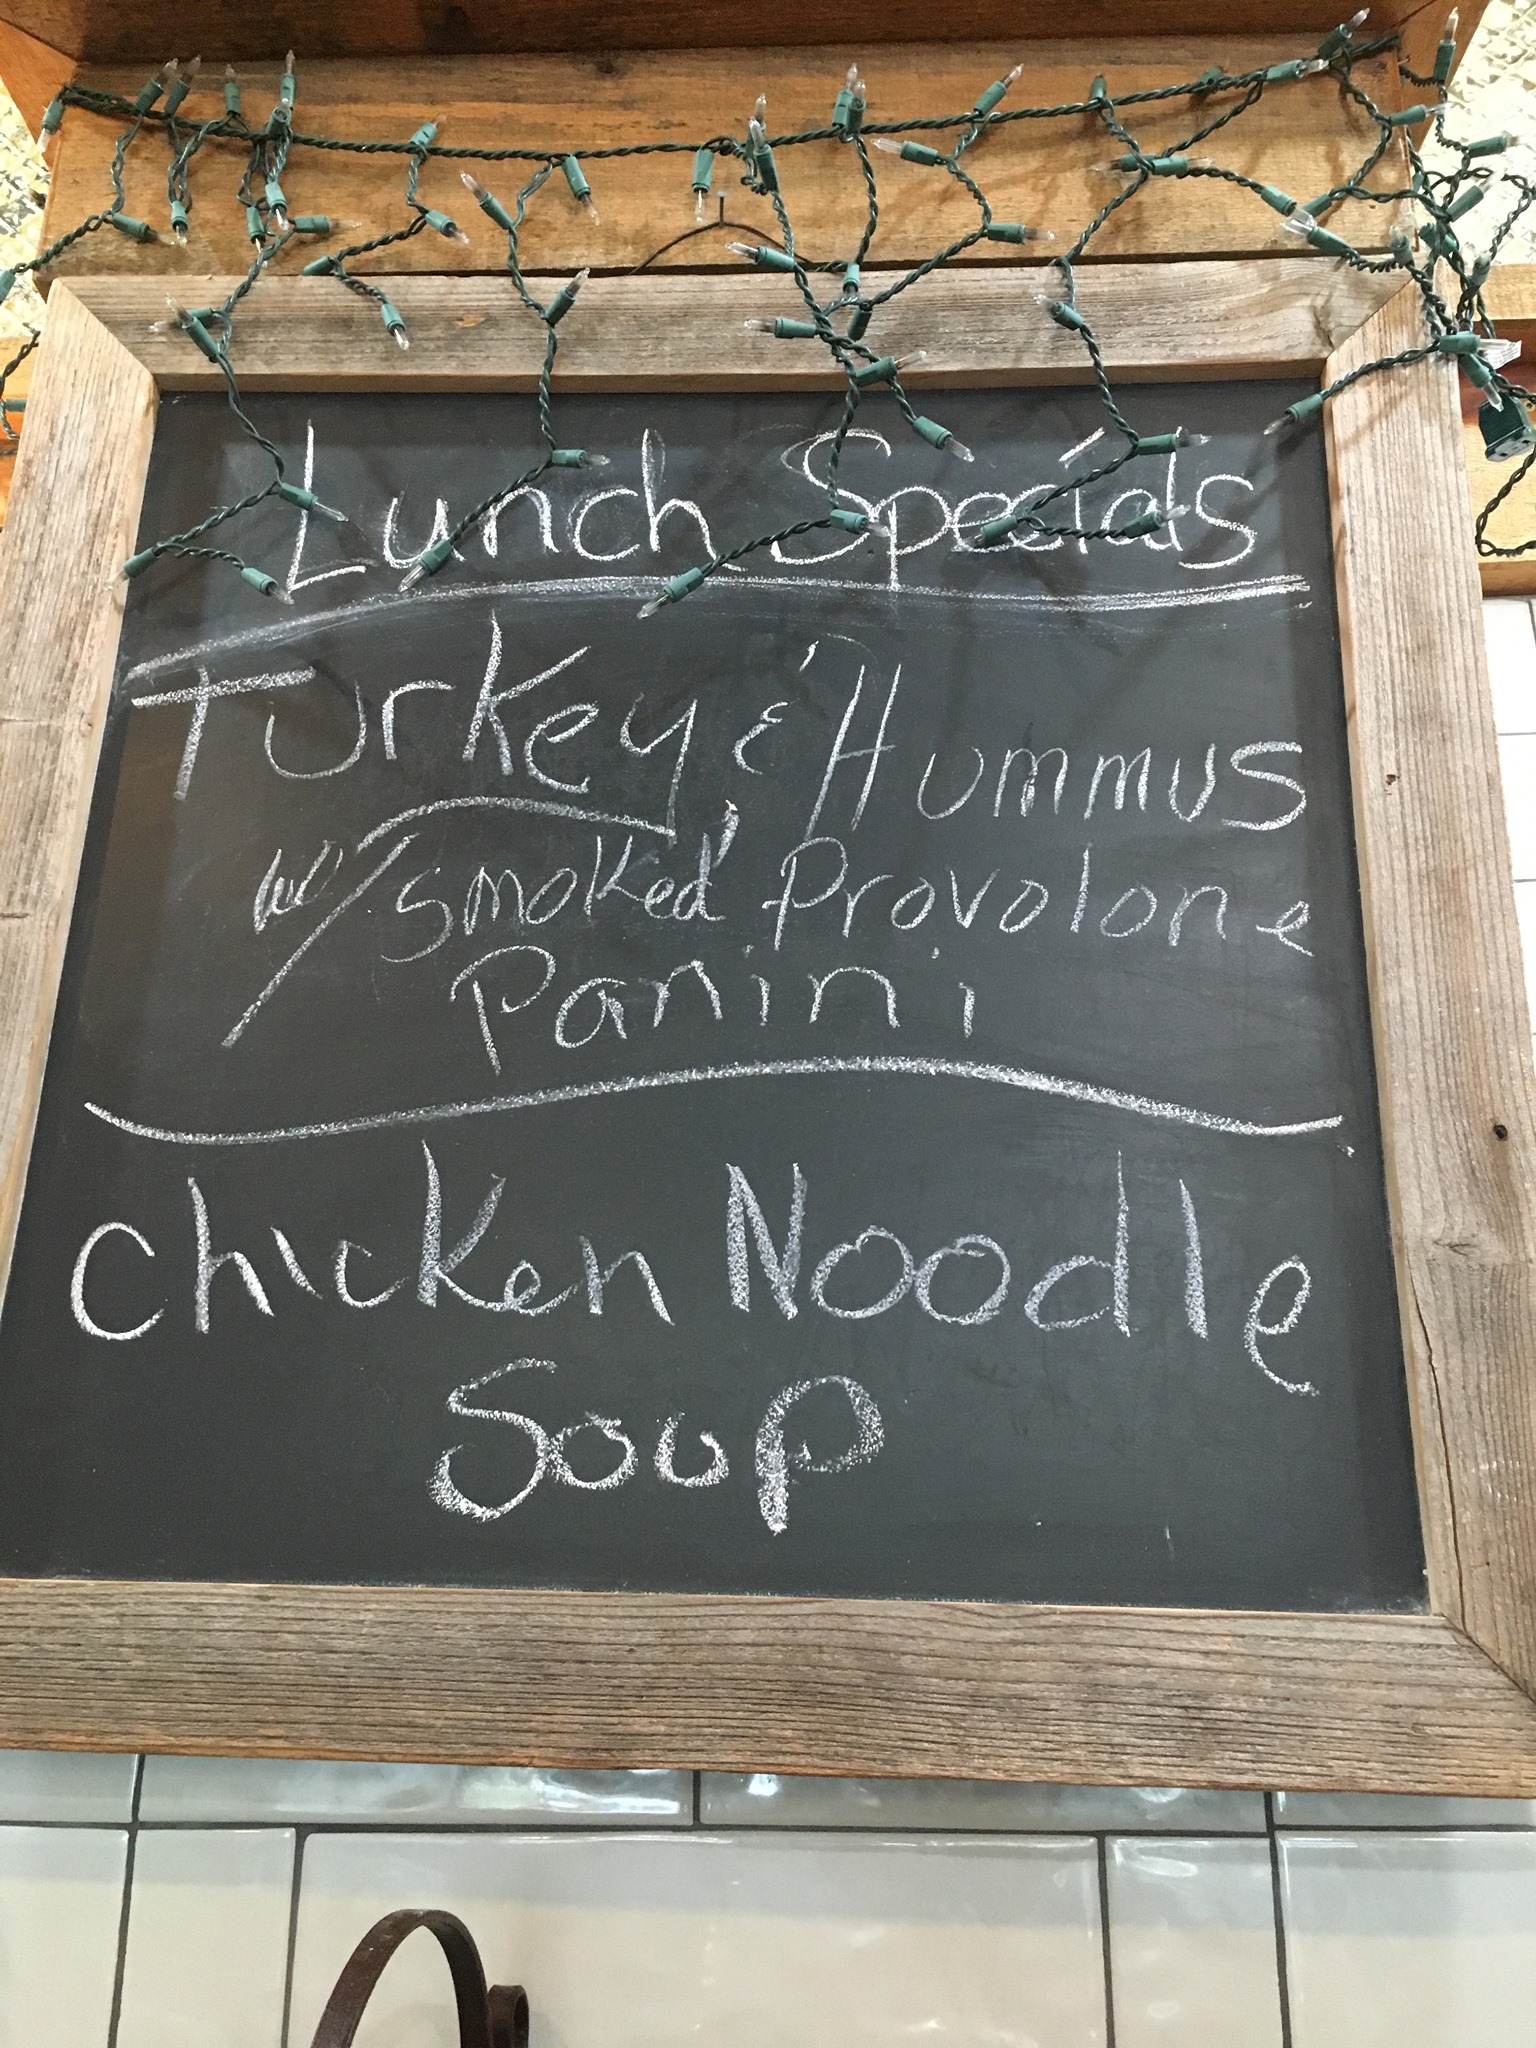 Lunch Specials
Turkey & Hummus
w/ Smoked Provolone
Panini
Chicken Noodle
Soup